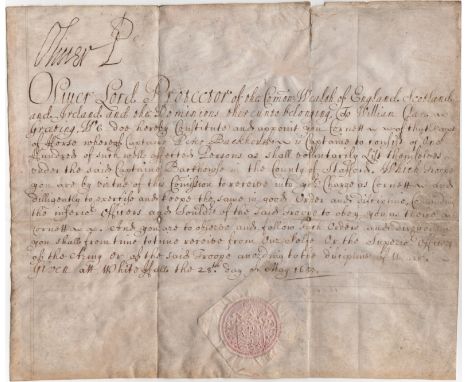 Oliver P
Oliver Lord Protector of the Comon Wealth of England Scotland
and Ireland and the Dominions thereunto belonging, To William
Greeting, We doe hereby Constitute and appoint you Cornett of that Troope
of Horse whereof Captaine is Captaine to consist of One
Hundred of such well affected Persons as shall voluntarily List themselves
under the said Captaine in the County of Stafford. Which Troope
you are by vertue of this Comission to receive into your Charge as Cornett and
diligently to exercise and keepe the same in good Order and discipline,
the inferior Officers and Souldrs of the said Troope to obey you as theire
Cornett And you are to observe and follow such Orders and
you shall from time to time receive from Our Selfe Or the Superior Officers
of the Army or of the said Troope according to the discipline of Warr
Given att White Hall the 28th day of May